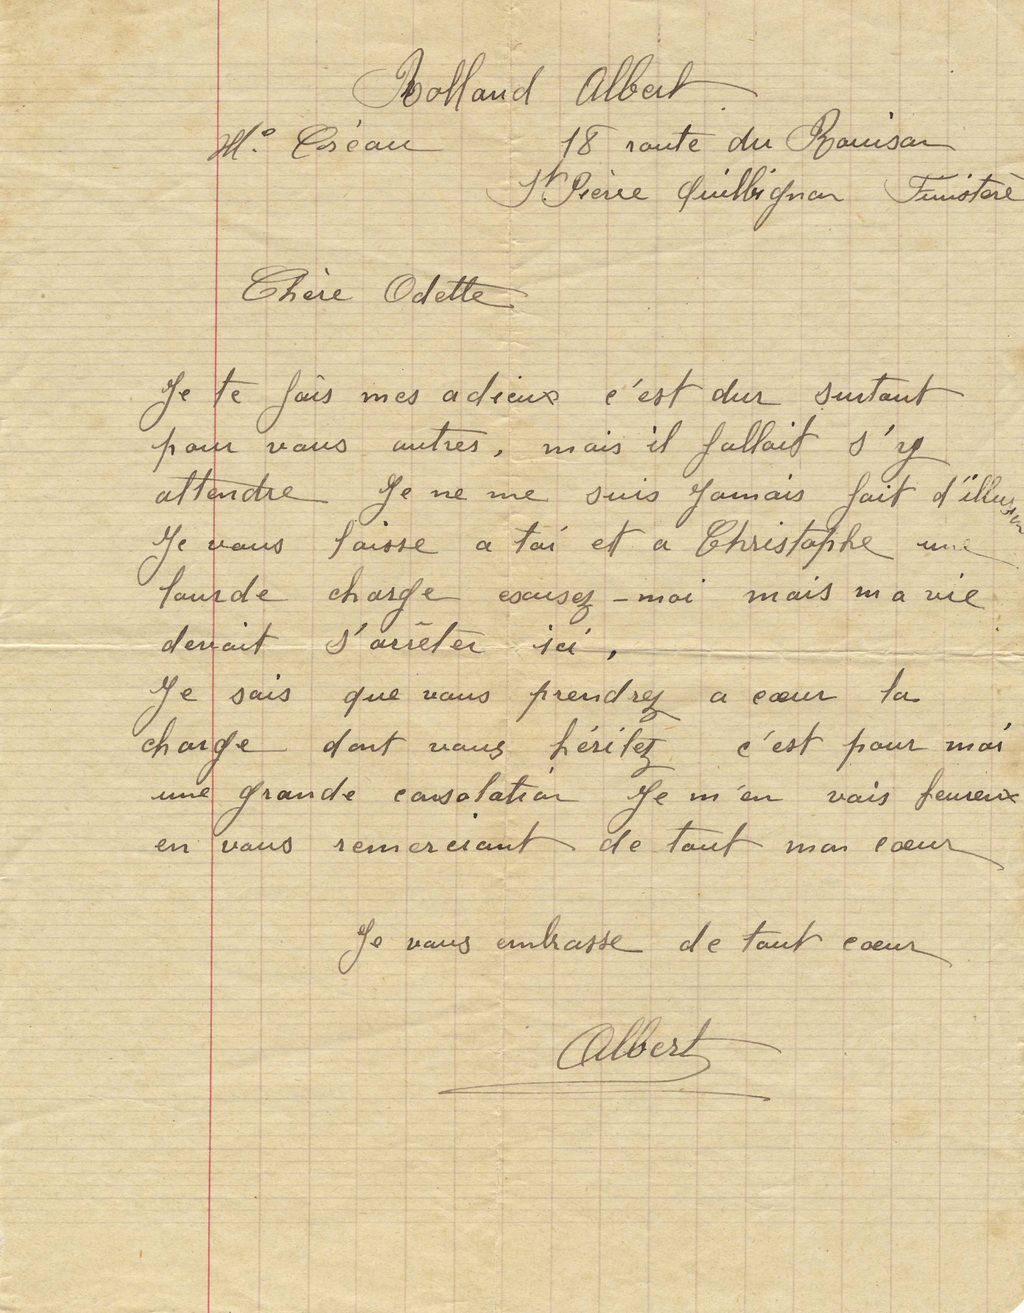 Rolland Albert
Mr Créau 18 route du Rouisan
St Pierre Quilbignon Finistère
Chère Odette
Je te fais mes adieux c'est dur surtout
pour vous autres, mais il fallait s'y
attendre Je ne me suis Jamais fait d'illusion
Je vous laisse a toi et a Christophe une
lourde charge excusez-moi mais ma vie
devait s'arrêter ici,
Je sais que vous prendrez a cœur la
charge dont vous héritez c'est pour moi
une grande consolation Je m'en vais heureux
en vous remerciant de tout mon cœur
Je vous embrasse de tout cœur
Albert